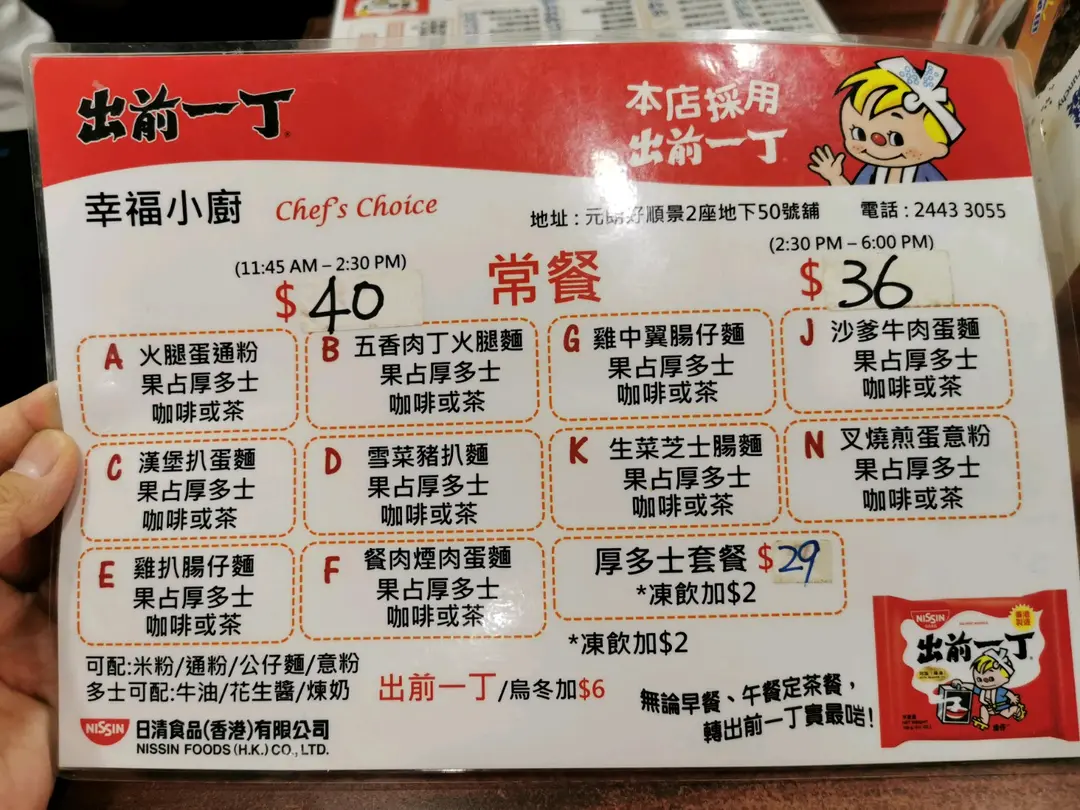 出前一丁
本店採用
出前一丁
幸福小廚 Chef's Choice
地址 : 元朗好順景2座地下50號舖 電話 : 2443 3055
(11:45 AM – 2:30 PM)
$40
常餐
(2:30 PM – 6:00 PM)
$36
A 火腿蛋通粉
果占厚多士
咖啡或茶
B 五香肉丁火腿麵
果占厚多士
咖啡或茶
G 雞中翼腸仔麵
果占厚多士
咖啡或茶
J 沙爹牛肉蛋麵
果占厚多士
咖啡或茶
C 漢堡扒蛋麵
果占厚多士
咖啡或茶
D 雪菜豬扒麵
果占厚多士
咖啡或茶
K 生菜芝士腸麵
果占厚多士
咖啡或茶
N 叉燒煎蛋意粉
果占厚多士
咖啡或茶
E 雞扒腸仔麵
果占厚多士
咖啡或茶
F 餐肉煙肉蛋麵
果占厚多士
咖啡或茶
厚多士套餐 $29
*凍飲加$2
*凍飲加$2
可配:米粉/通粉/公仔麵/意粉
多士可配:牛油/花生醬/煉奶
出前一丁/烏冬加$6
無論早餐、午餐定茶餐，
轉出前一丁實最啱!
NISSIN 日清食品(香港)有限公司
NISSIN FOODS (H.K.) CO., LTD.
NISSIN
香港
製造
出前一丁